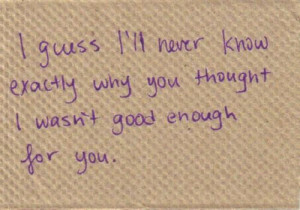 I guess I'll never know
exactly why you thought
I wasn't good enough
for you.